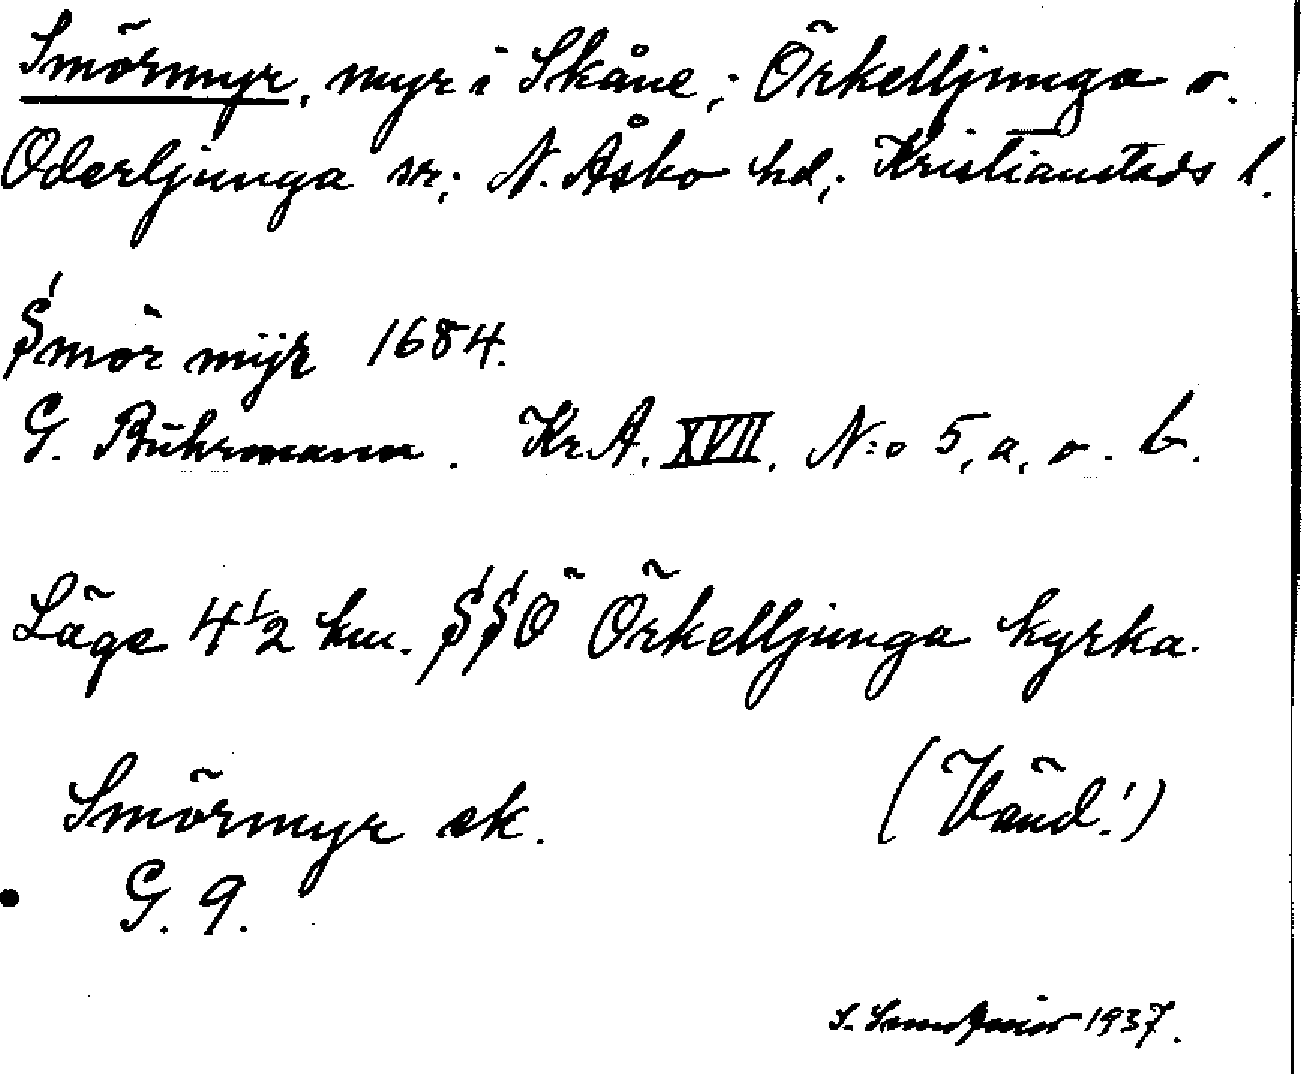 Smörmyr, myr i Skåne; Örkelljunga o.
Oderljunga snr; N. Åsbo hd; Kristianstads l.
Smör mÿr 1684.
G. Buhrmann. Kr.A. XVII. N:o 5, a, o. b.
Läge 4 1/2 km. SSÖ Örkelljunga kyrka.
Smörmyr ek.
(Vänd!)
G. 9.
S. 1937.